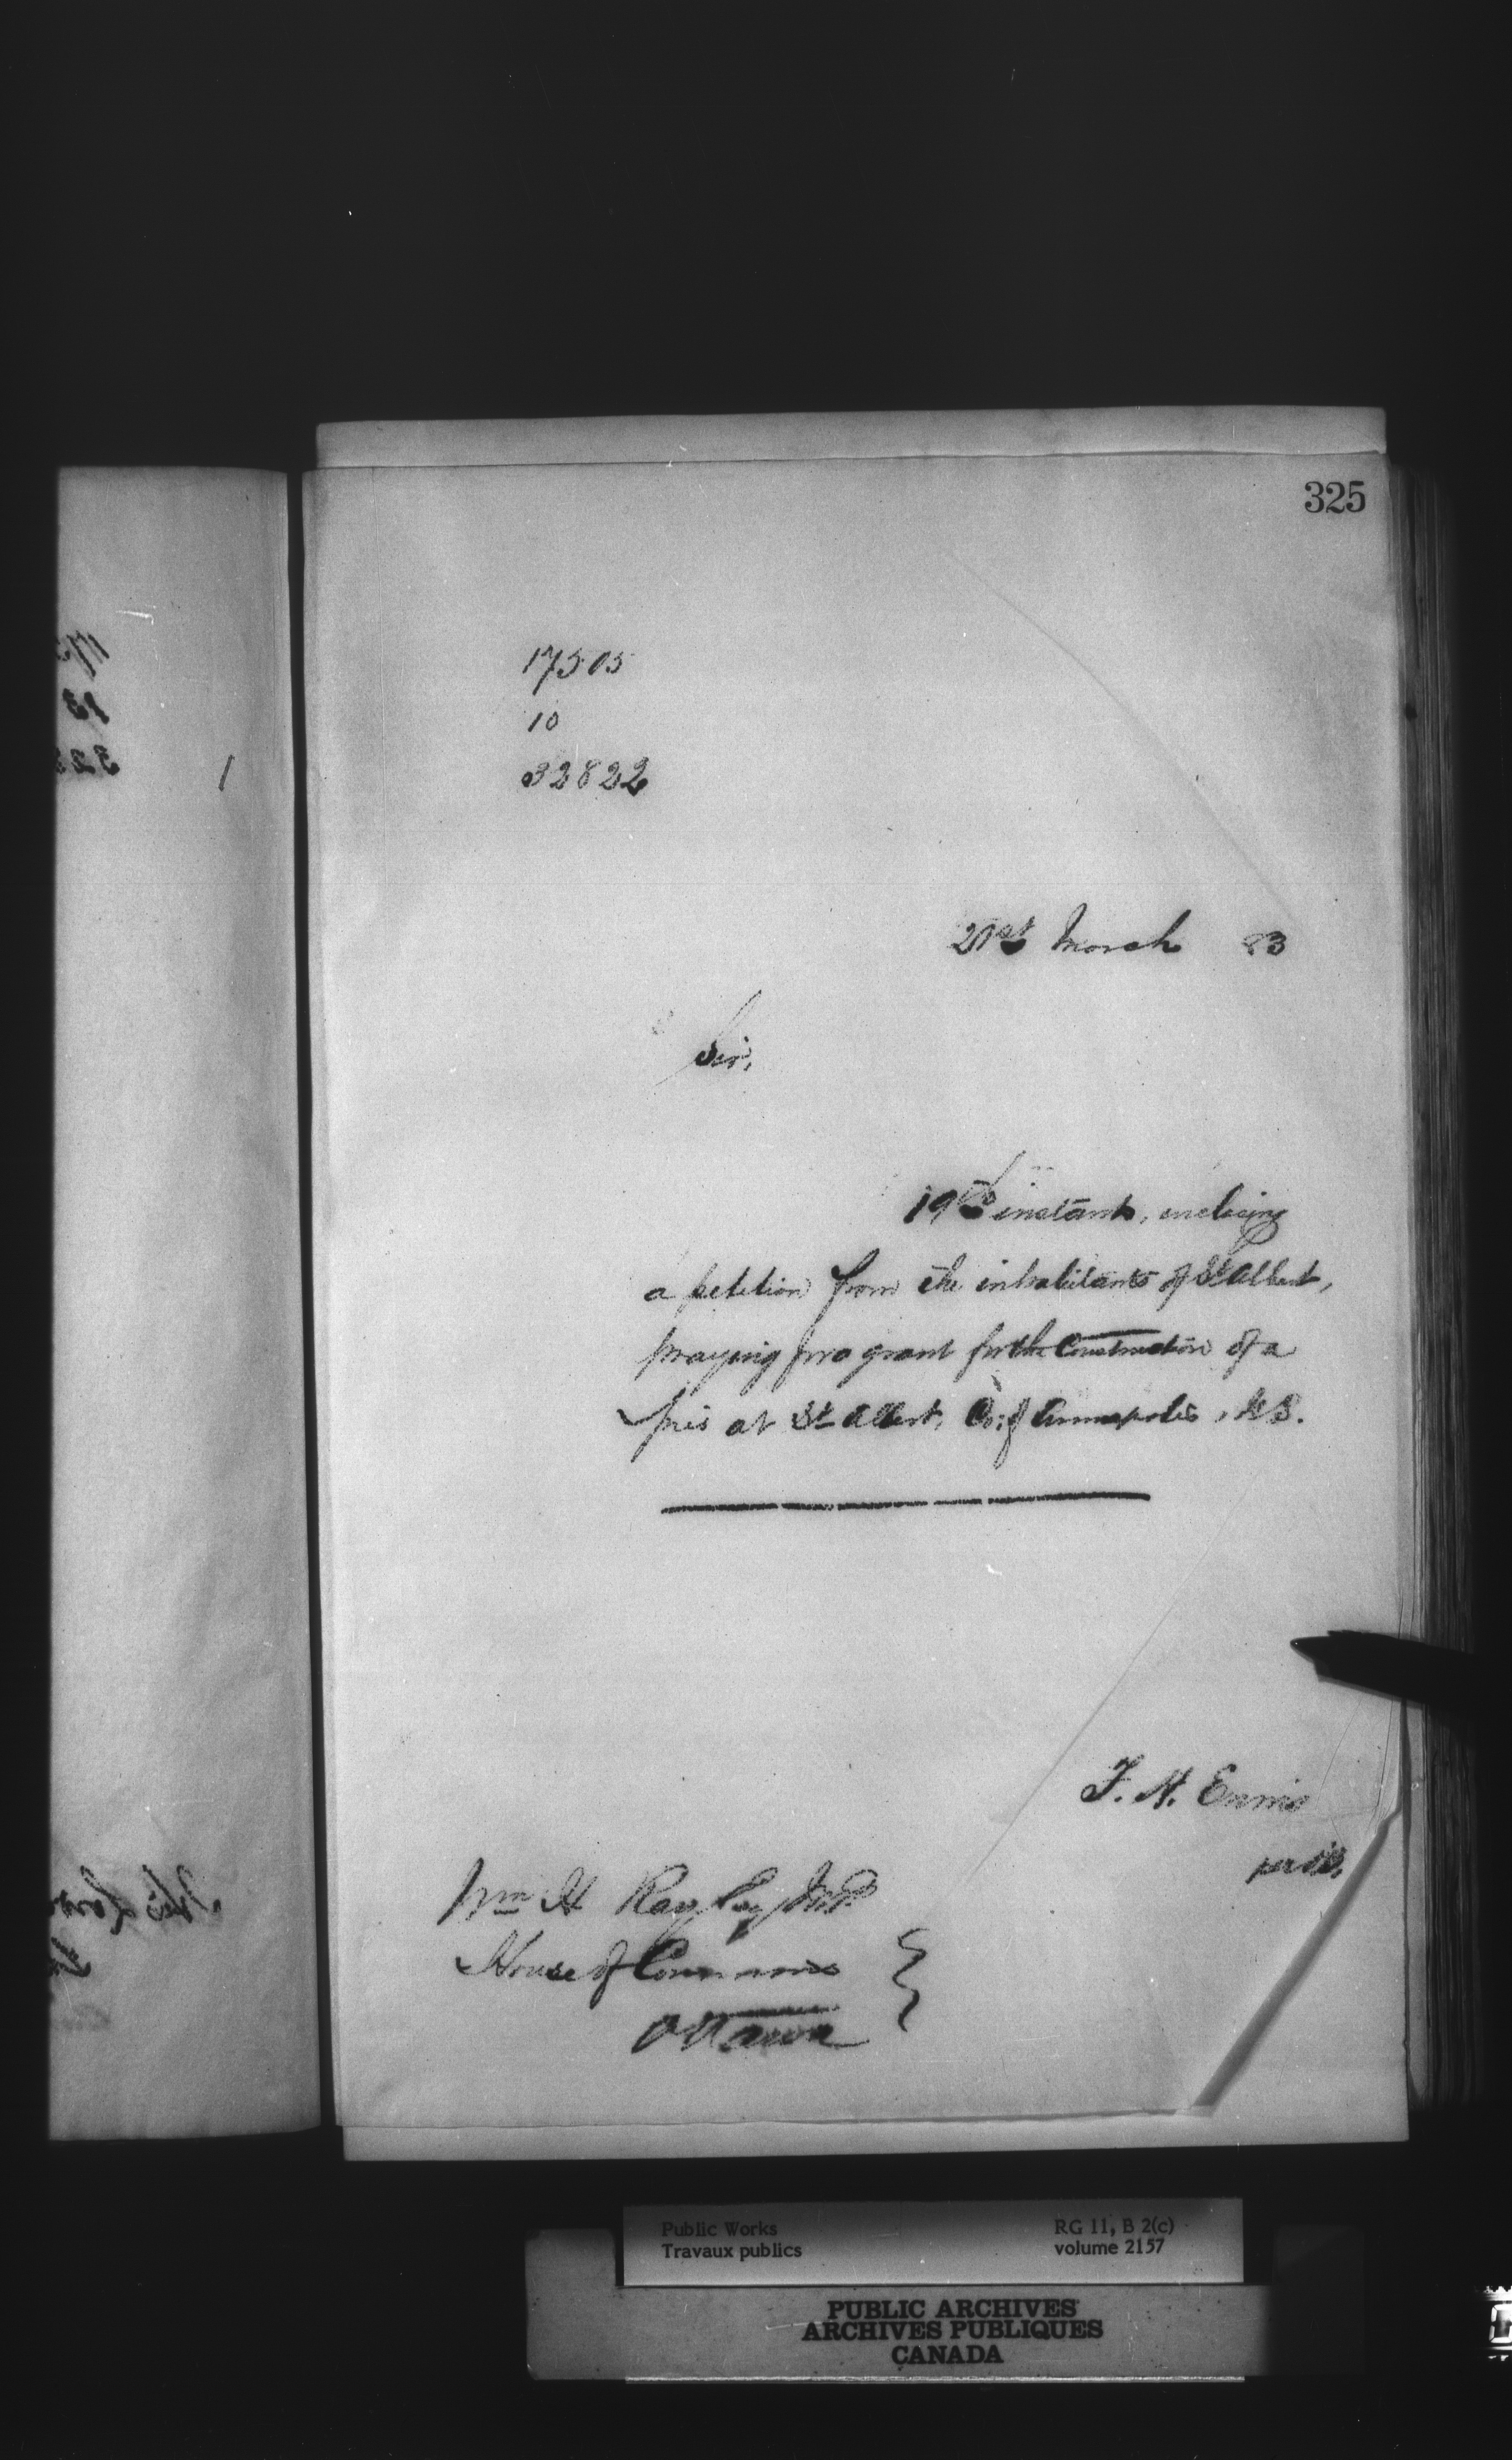 325
17505
10
32822
21st March 83
Sir,
19th instant, enclosing
a petition from the inhabitants of St Albert,
praying for a grant for the Construction of a
pier at St Albert, Co: of Annapolis, N.S.
F. H. Ennis
per
Wm H Ray Esq M.P.
House of Commons
Ottawa
Public Works
Travaux publics
RG 11, B 2(c)
volume 2157
PUBLIC ARCHIVES
ARCHIVES PUBLIQUES
CANADA